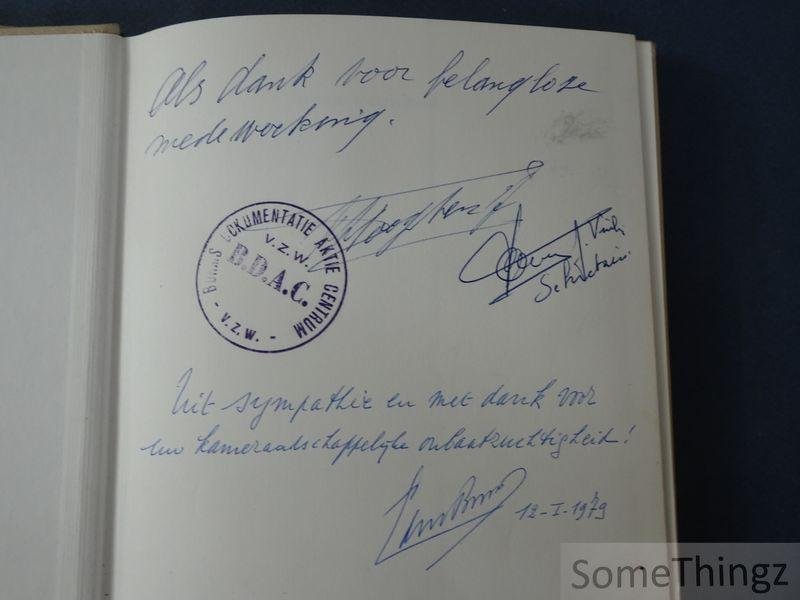 Als dank voor belangloze
medewerking.
BORMS DOKUMENTATIE AKTIE CENTRUM
v.z.w.
B.D.A.C.
- v.z.w. -
Sekretaris.
Uit sympathie en met dank voor
uw kameraadschappelijke onbaatzuchtigheid!
12-I-1979
SomeThingz